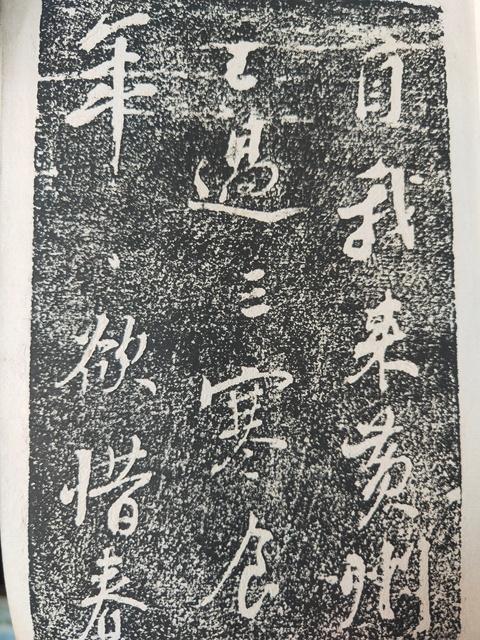 自我来黄州
已過三寒食
年〻欲惜春